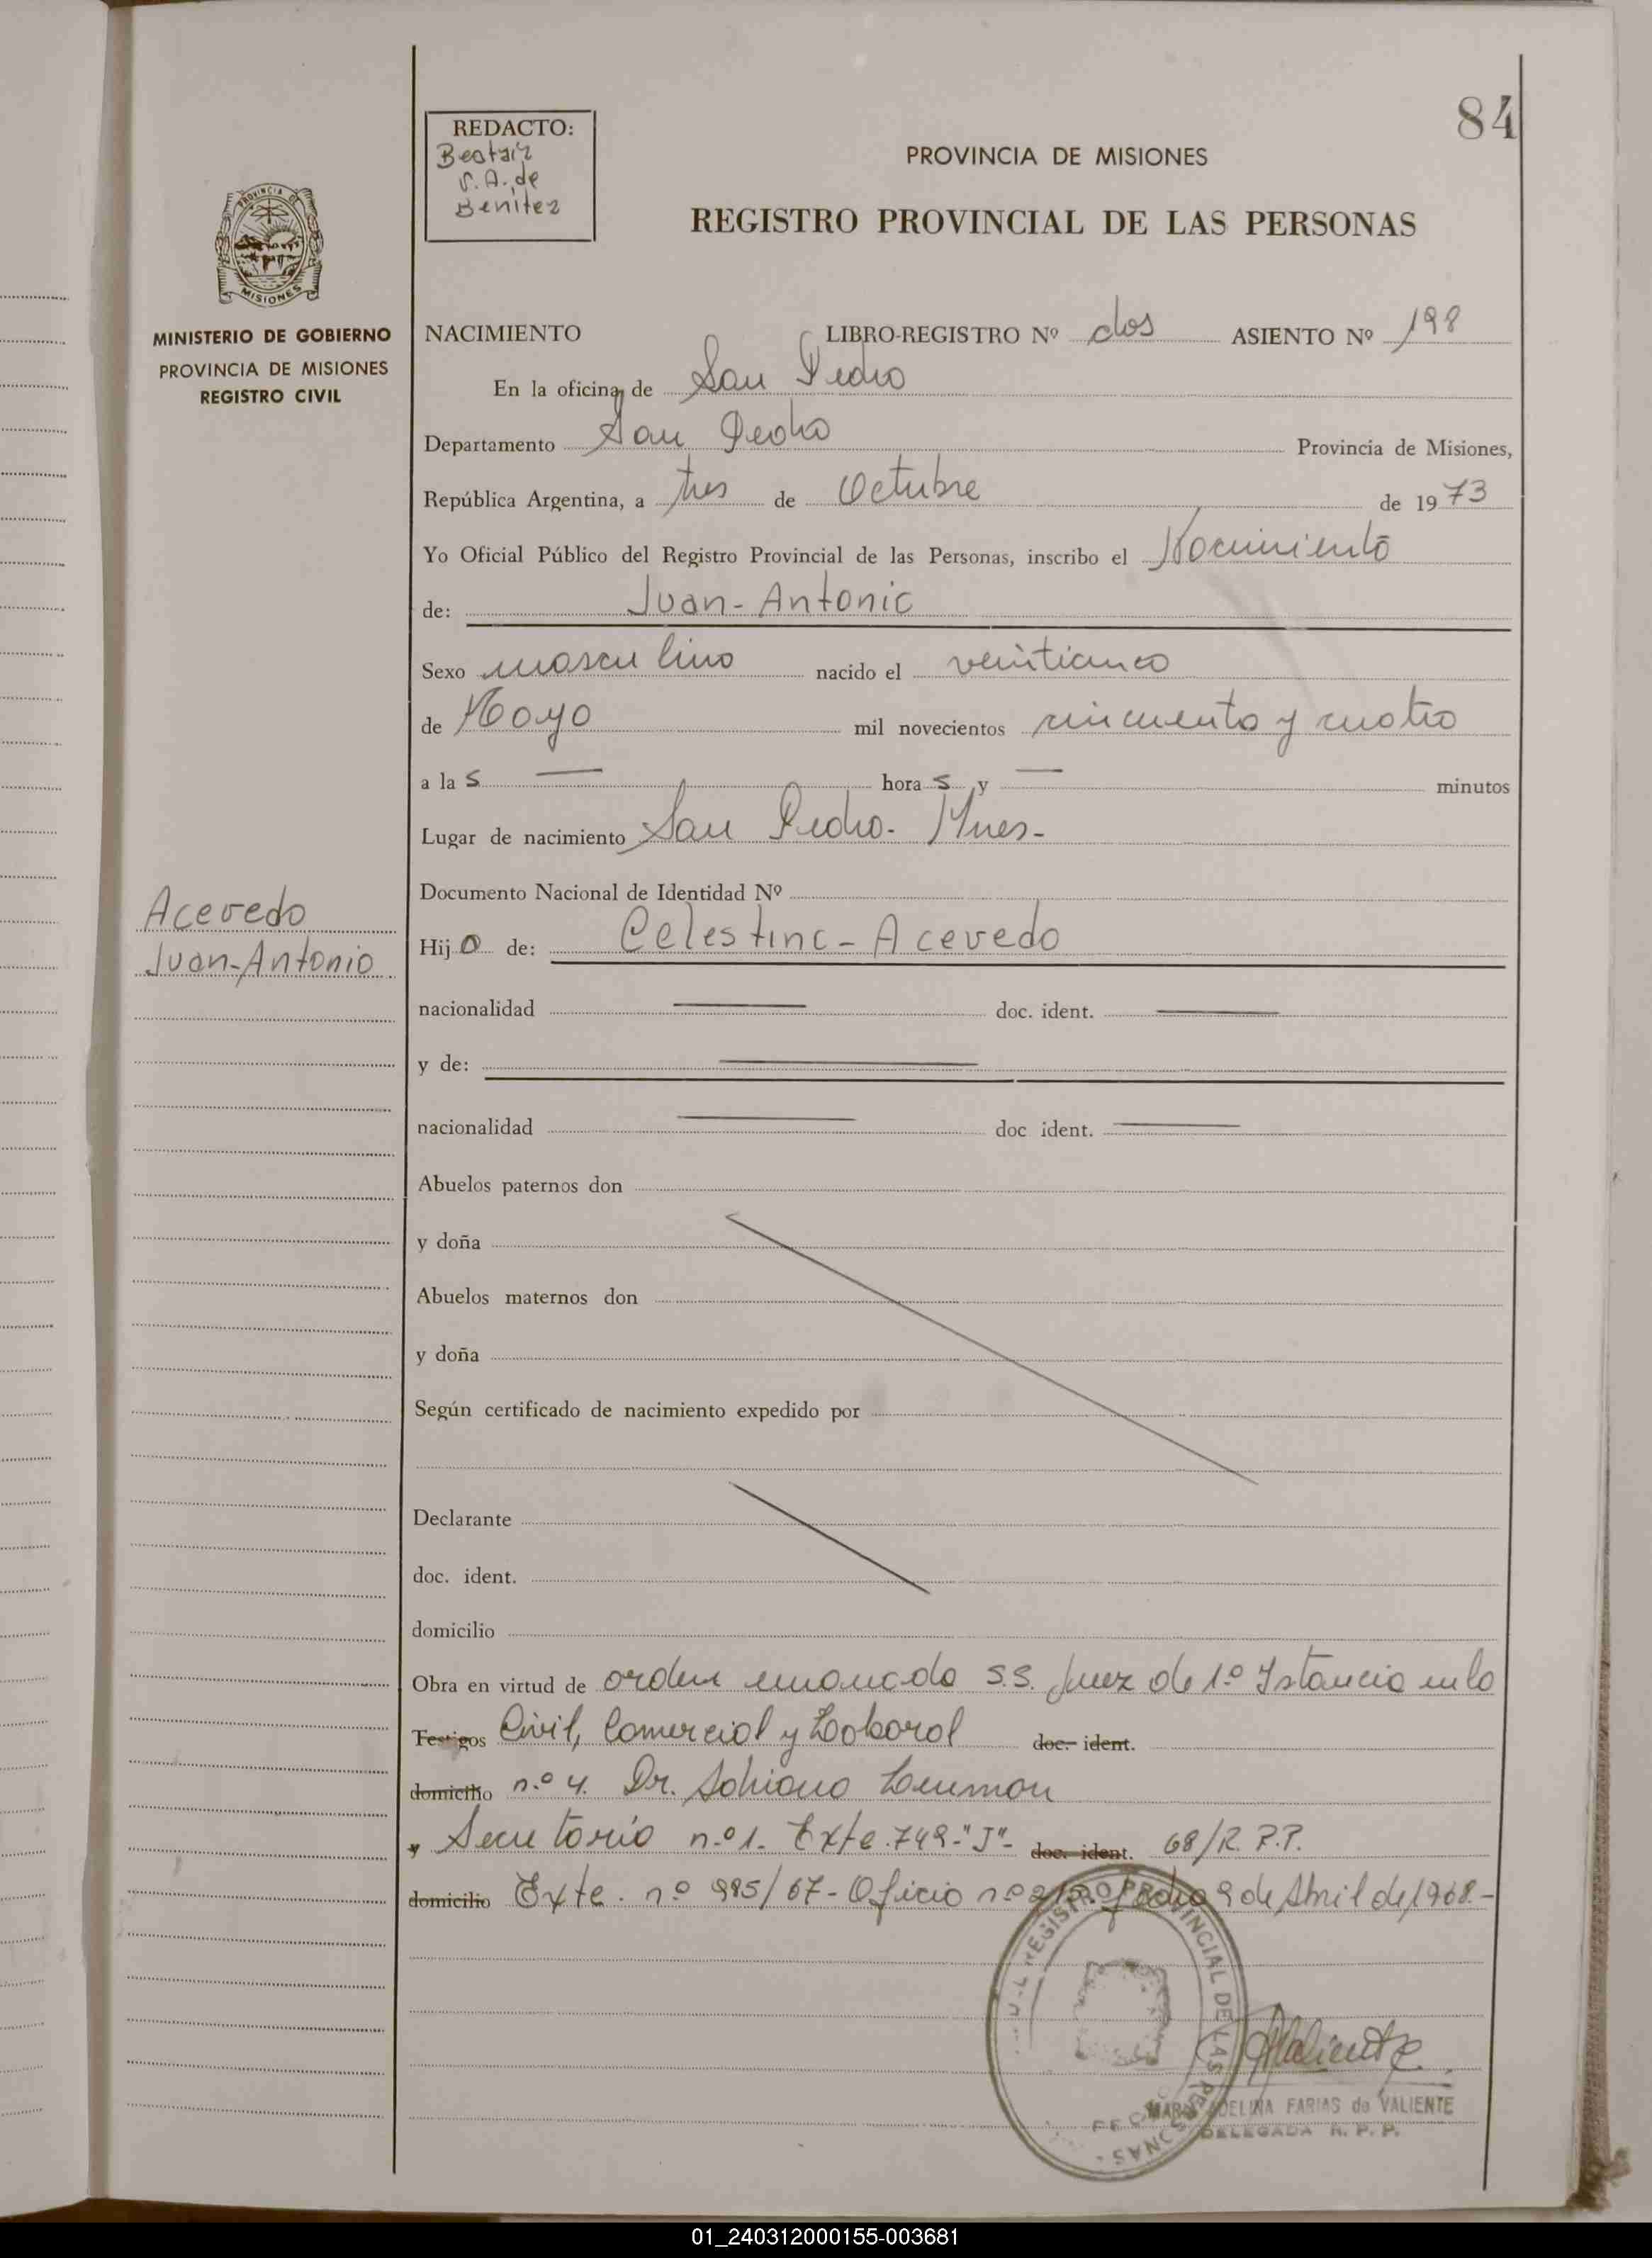 84
REDACTO:
Beatriz
V. A. de
Benitez
PROVINCIA DE MISIONES
REGISTRO PROVINCIAL DE LAS PERSONAS
PROVINCIA DE
MISIONES
MINISTERIO DE GOBIERNO
PROVINCIA DE MISIONES
REGISTRO CIVIL
NACIMIENTO LIBRO-REGISTRO Nº dos ASIENTO Nº 198
En la oficina de San Pedro
Departamento San Pedro Provincia de Misiones,
República Argentina, a tres de Octubre de 1973
Yo Oficial Público del Registro Provincial de las Personas, inscribo el Nacimiento
de: Juan-Antonio
Sexo masculino nacido el veinticinco
de Mayo mil novecientos cincuenta y cuatro
a la s — hora s y — minutos
Lugar de nacimiento San Pedro. Mnes-
Documento Nacional de Identidad Nº
Acevedo
Juan-Antonio
Hijo de: Celestina-Acevedo
nacionalidad — doc. ident. —
y de: —
nacionalidad — doc ident. —
Abuelos paternos don
y doña
Abuelos maternos don
y doña
Según certificado de nacimiento expedido por
Declarante
doc. ident.
domicilio
Obra en virtud de orden emanada S.S. Juez de 1º Istancia en lo
Testigos Civil, Comercial y Laboral doc. ident.
domicilio n.º 4. Dr.
y Secretario n.º 1- Exte. 749-"J"- doc. ident. 68/R.P.P.
domicilio Exte. nº 995/67-Oficio nº fecha 9 de Abril de 1968.-
REGISTRO PROVINCIAL DE LAS PERSONAS
Valiente
MARIA ADELINA FARIAS de VALIENTE
DELEGADA R. P. P.
01_240312000155-003681